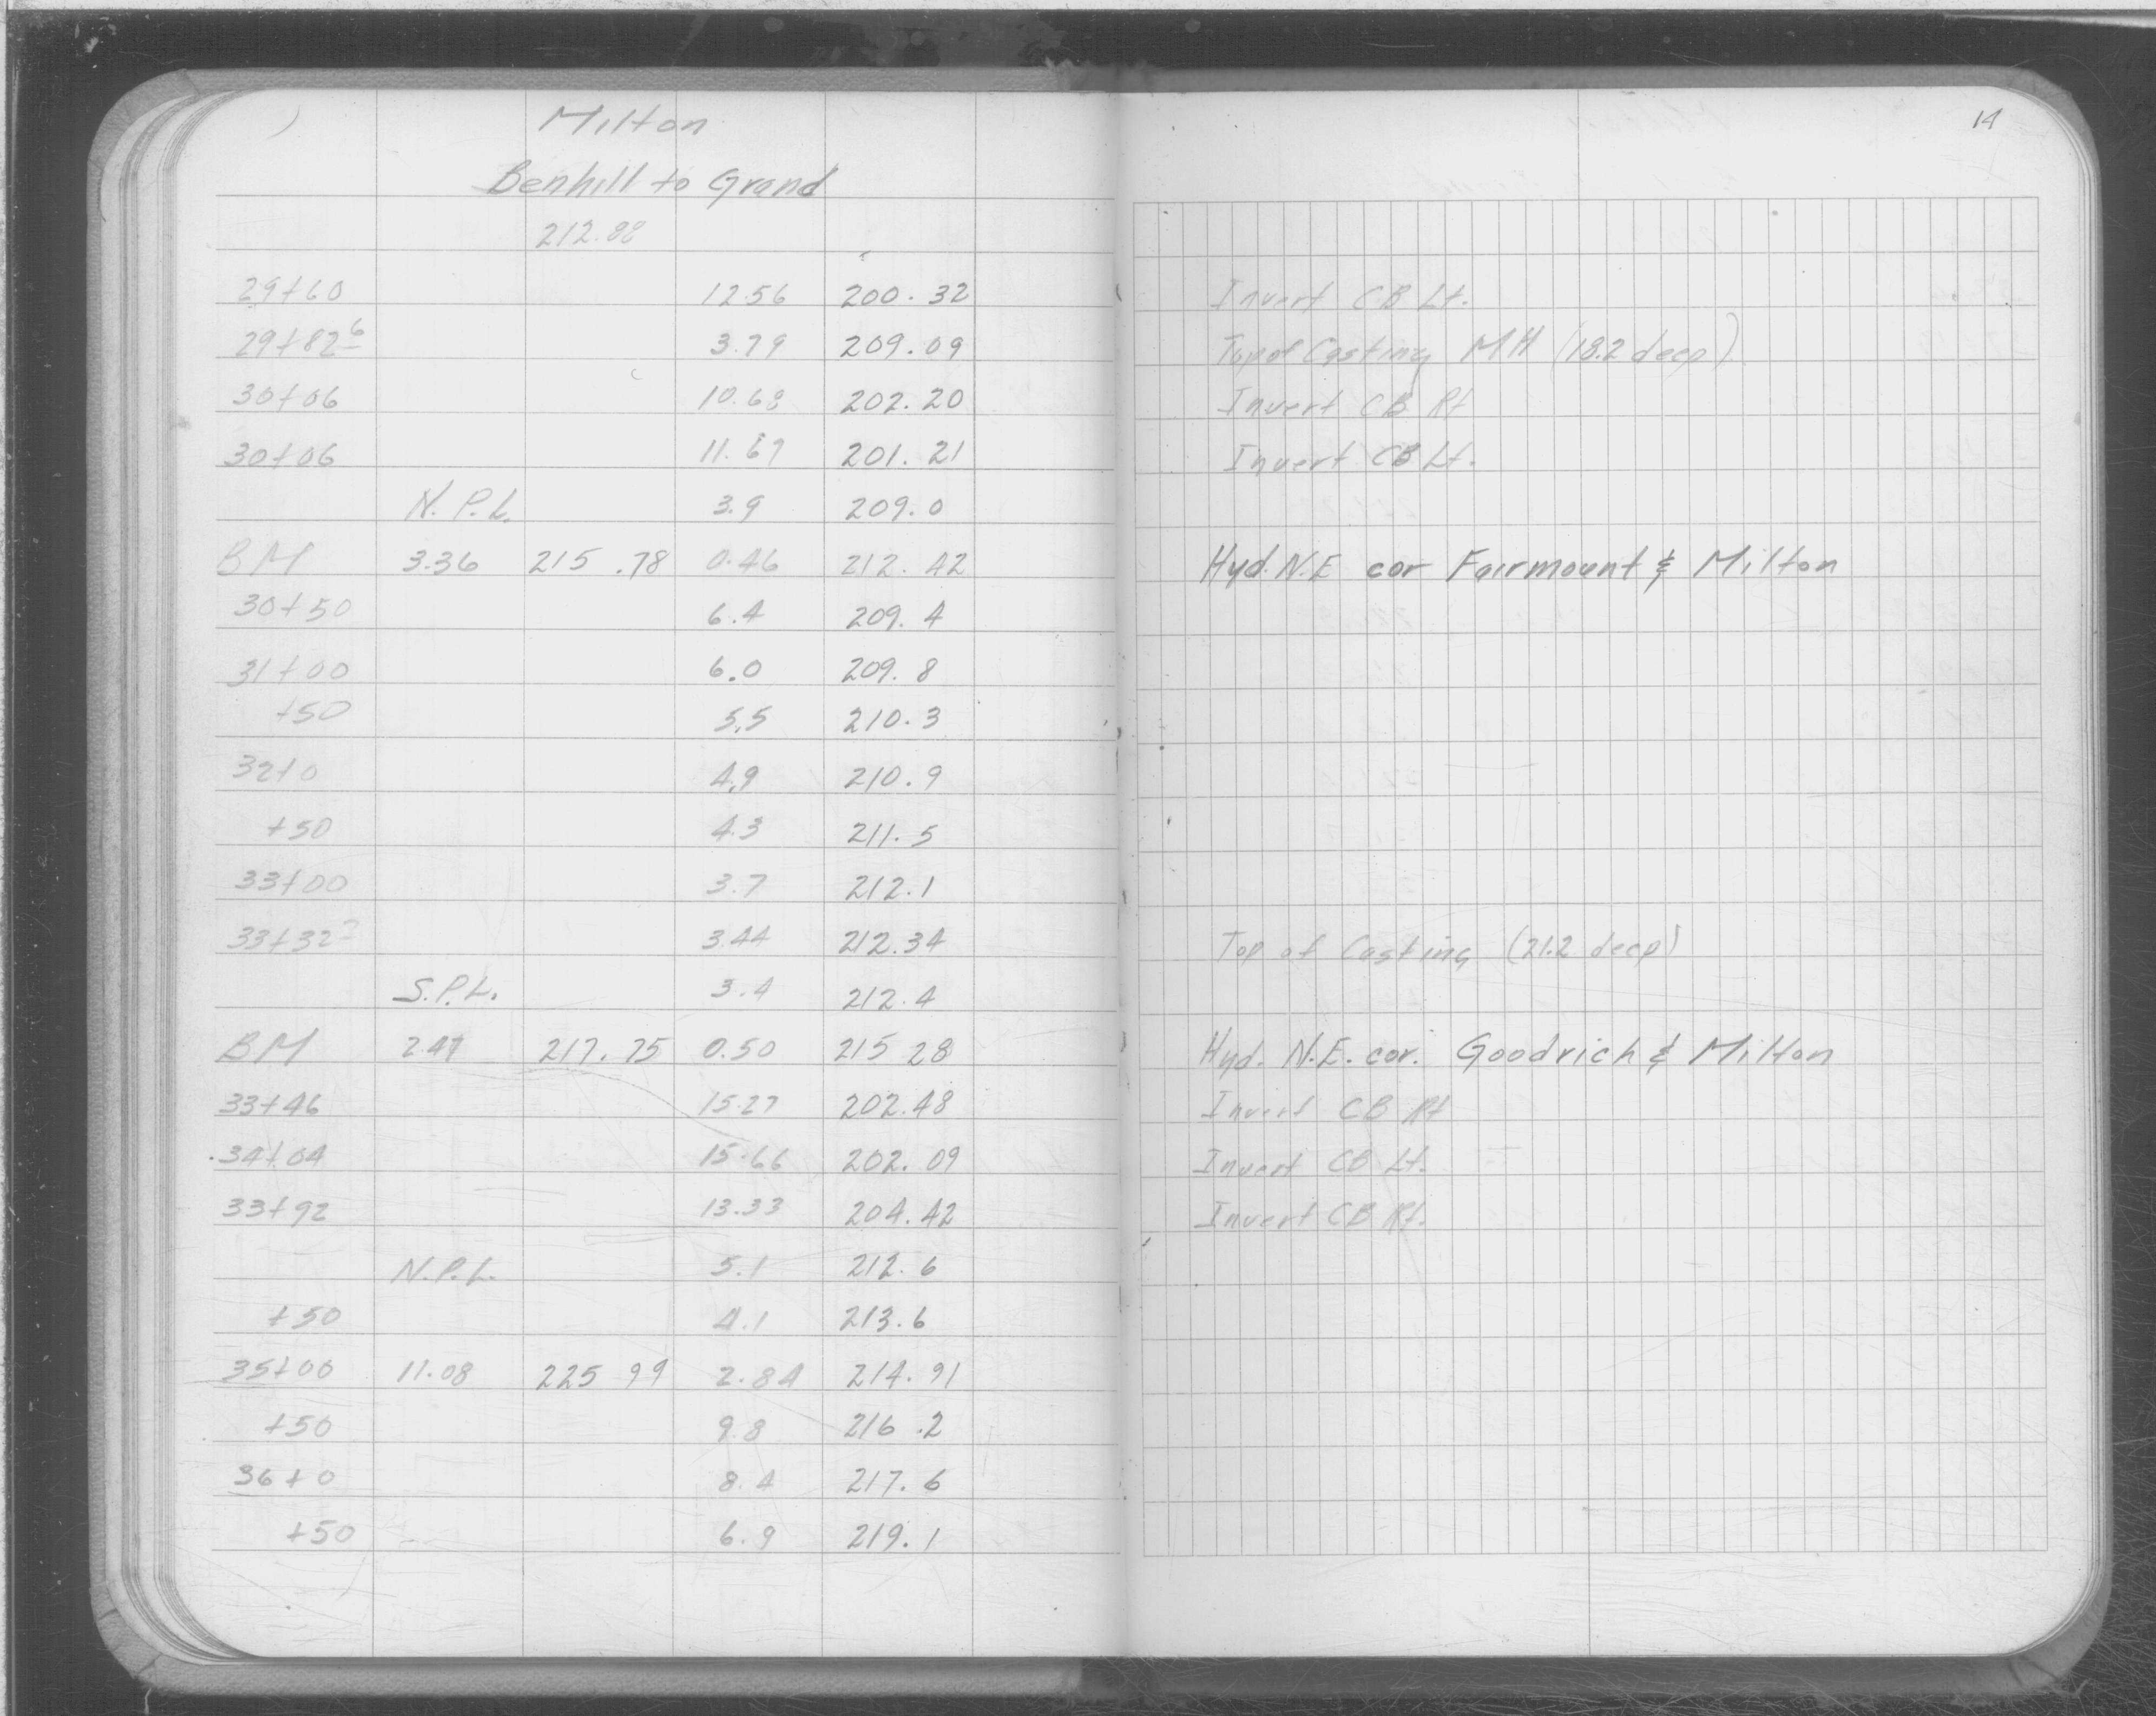 Milton
14
Benhill to Grand
212.88
29+60 12.56 200.32 Invert CB Lt.
29+82 6 3.79 209.09 Top of Casting MH (18.2 deep)
30+06 10.68 202.20 Invert CB Rt
30+06 11.67 201.21 Invert CB Lt.
N.P.L. 3.9 209.0
BM 3.36 215.78 0.46 212.42 Hyd. N.E cor Fairmount & Milton
30+50 6.4 209.4
31+00 6.0 209.8
+50 5.5 210.3
32+0 4.9 210.9
+50 4.3 211.5
33+00 3.7 212.1
33+32 3.44 212.34 Top of Casting (21.2 deep)
S.P.L. 3.4 212.4
BM 2.47 217.75 0.50 215 28 Hyd. N.E. cor. Goodrich & Milton
33+46 15.27 202.48 Invert CB Rt
34+04 15.66 202.09 Invert CB Lt.
33+92 13.33 204.42 Invert CB Rt.
N.P.L. 5.1 212.6
+50 4.1 213.6
35+00 11.08 225 99 2.84 214.91
+50 9.8 216.2
36+0 8.4 217.6
+50 6.9 219.1